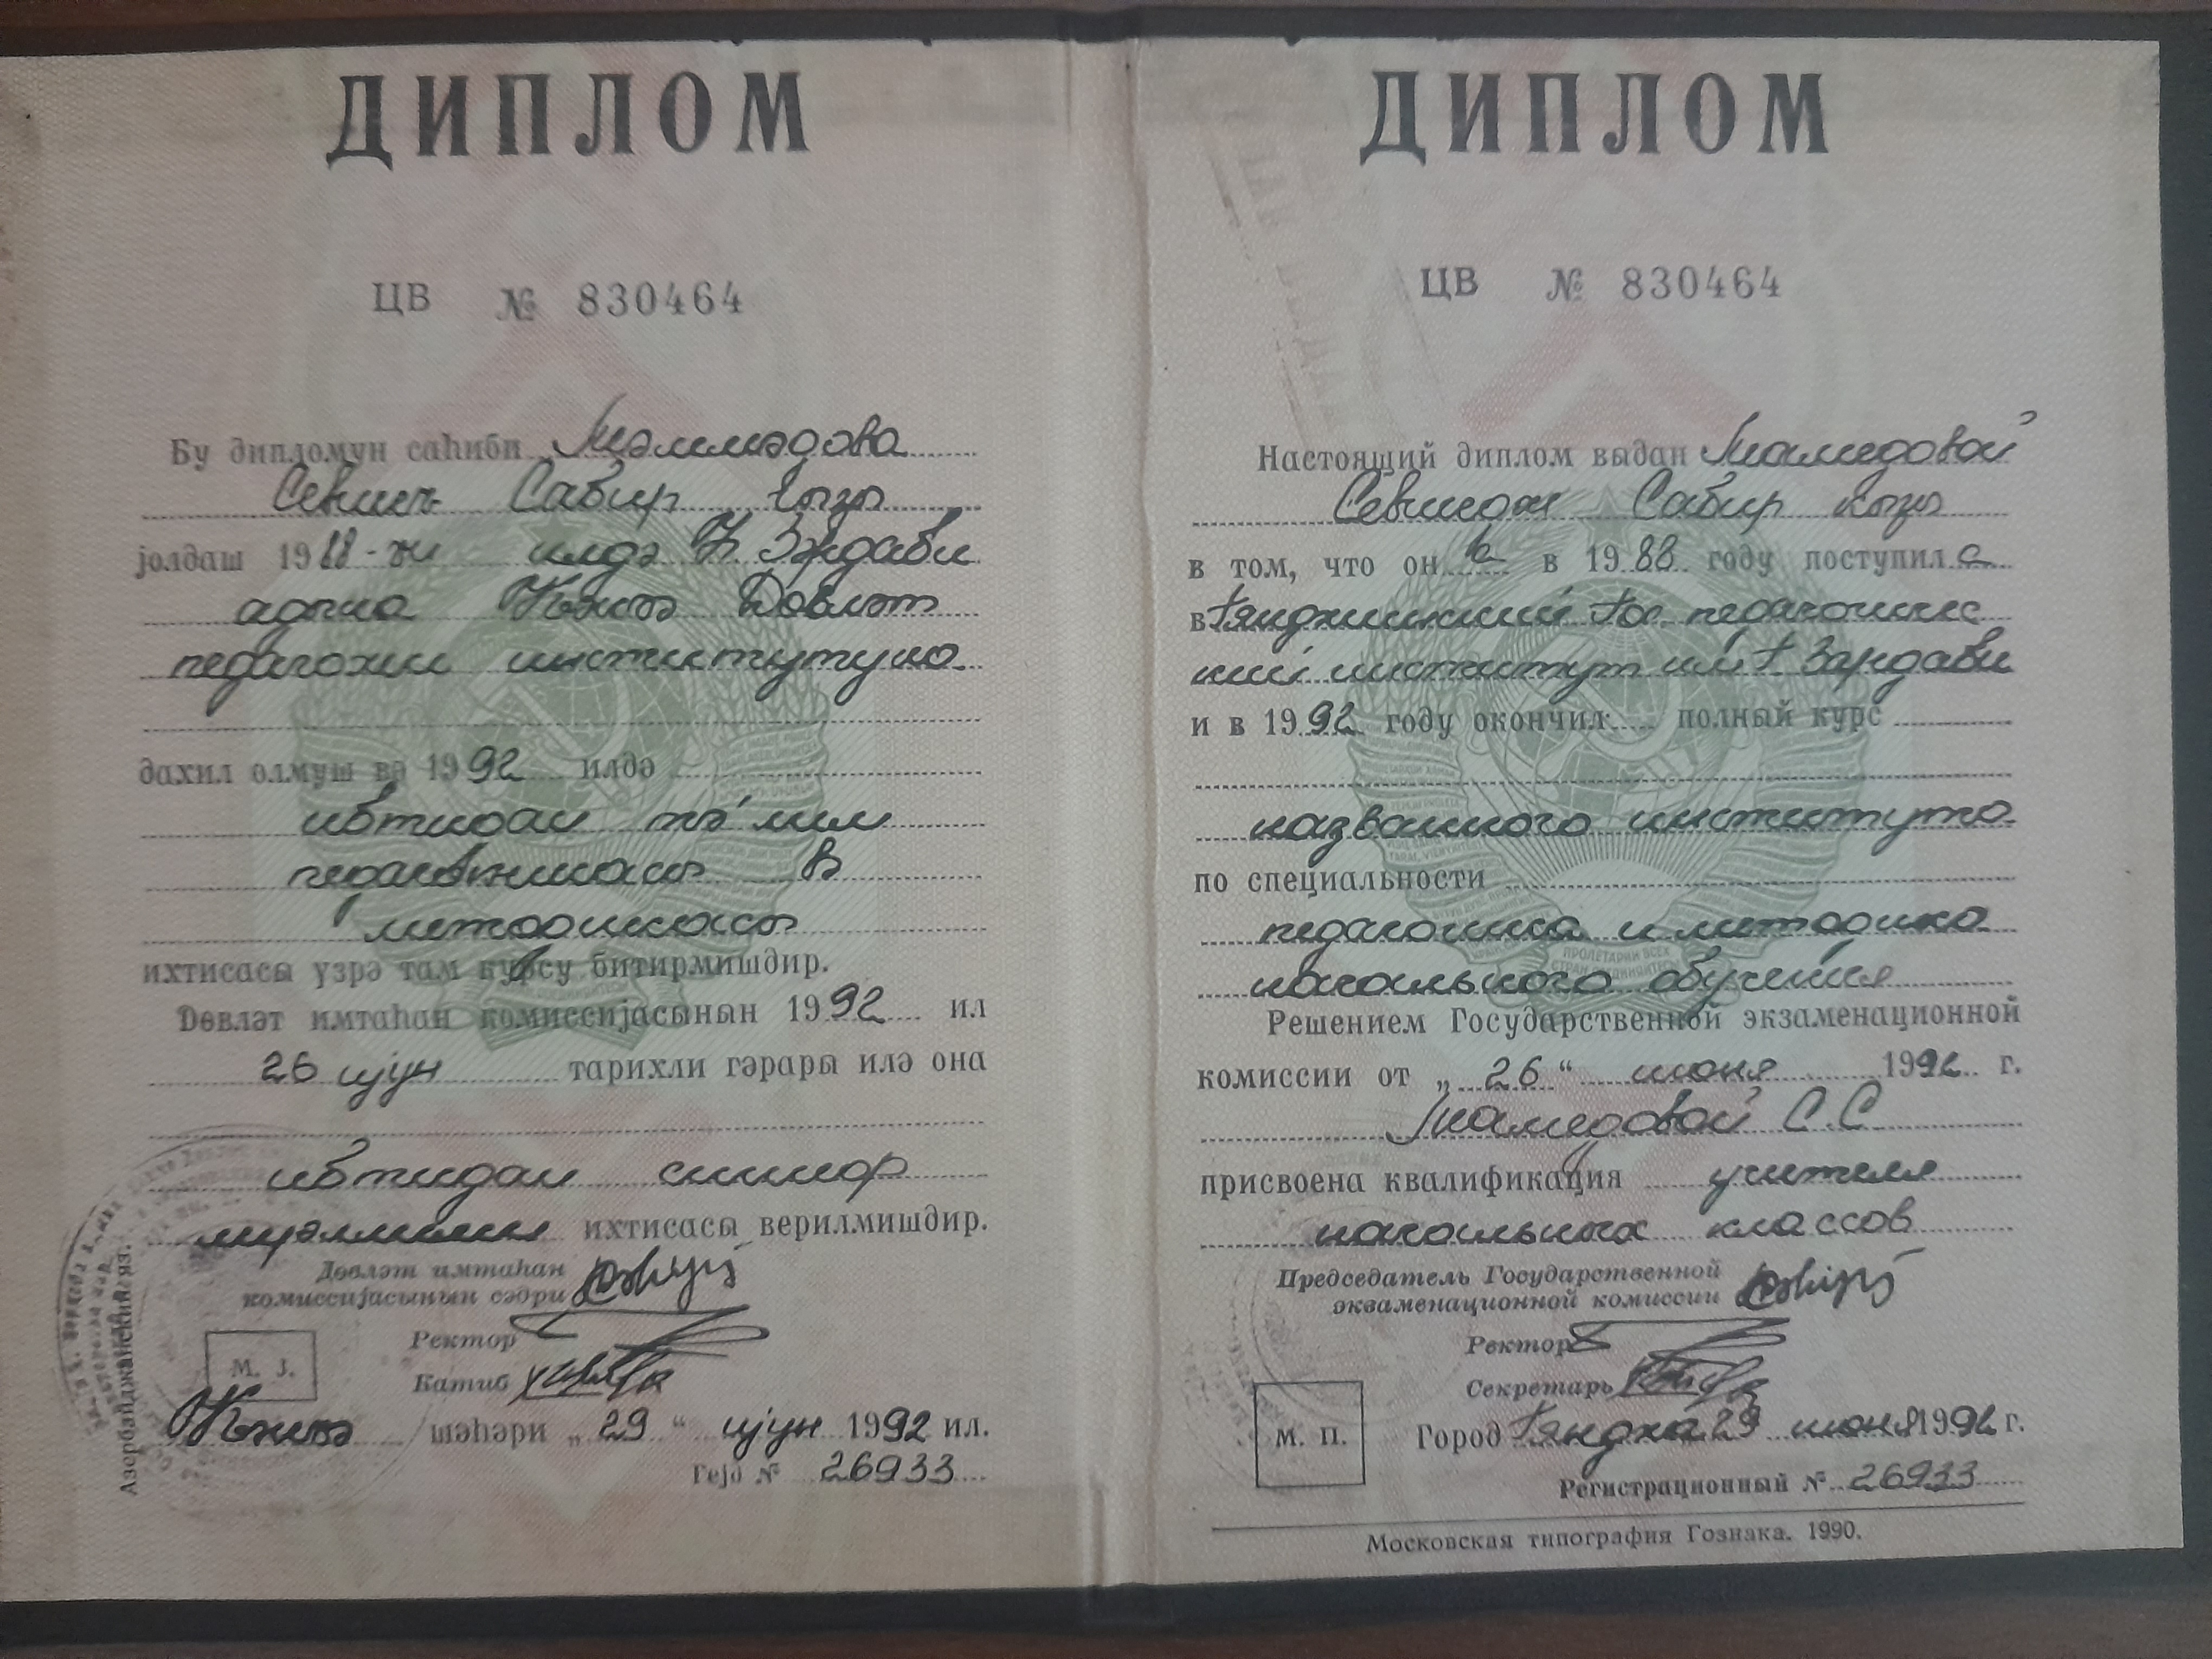 ДИПЛОМ
ЦВ № 830464
Бу дипломун саһиби Мәммәдова
Севинҹ Сабир гызы
јолдаш 1988-ҹи илдә Һ. Зәрдаби
адына Ҝәнҹә Дөвләт
педагожи институтуна
дахил олмуш вә 1992 илдә
ибтидаи тә'лим
педагоҝикасы вә
методикасы
ихтисасы үзрә там курсу битирмишдир.
Дөвләт имтаһан комиссијасынын 1992 ил
26 ијун тарихли гәрары илә она
ибтидаи синиф
мүәллими ихтисасы верилмишдир.
Дөвләт имтаһан
комиссијасынын сәдри
Ректор
Катиб
М. Ј.
Ҝәнҹә шәһәри „29“ ијун 1992 ил.
Гејд № 26933
Азербайджанский яз.
ДИПЛОМ
ЦВ № 830464
Настоящий диплом выдан Мамедовой
Севиндж Сабир кызы
в том, что он а в 1988 году поступил а
в Гянджинский Гос. педагогичес
кий институт им Г. Зардаби
и в 1992 году окончил полный курс
названного института
по специальности
педагогика и методика
начального обучения
Решением Государственной экзаменационной
комиссии от „26“ июня 1992 г.
Мамедовой С.С
присвоена квалификация учителя
начальных классов
Председатель Государственной
экзаменационной комиссии
Ректор
Секретарь
М. П.
Город Гянджа 29 июня 1992 г.
Регистрационный № 26933
Московская типография Гознака. 1990.